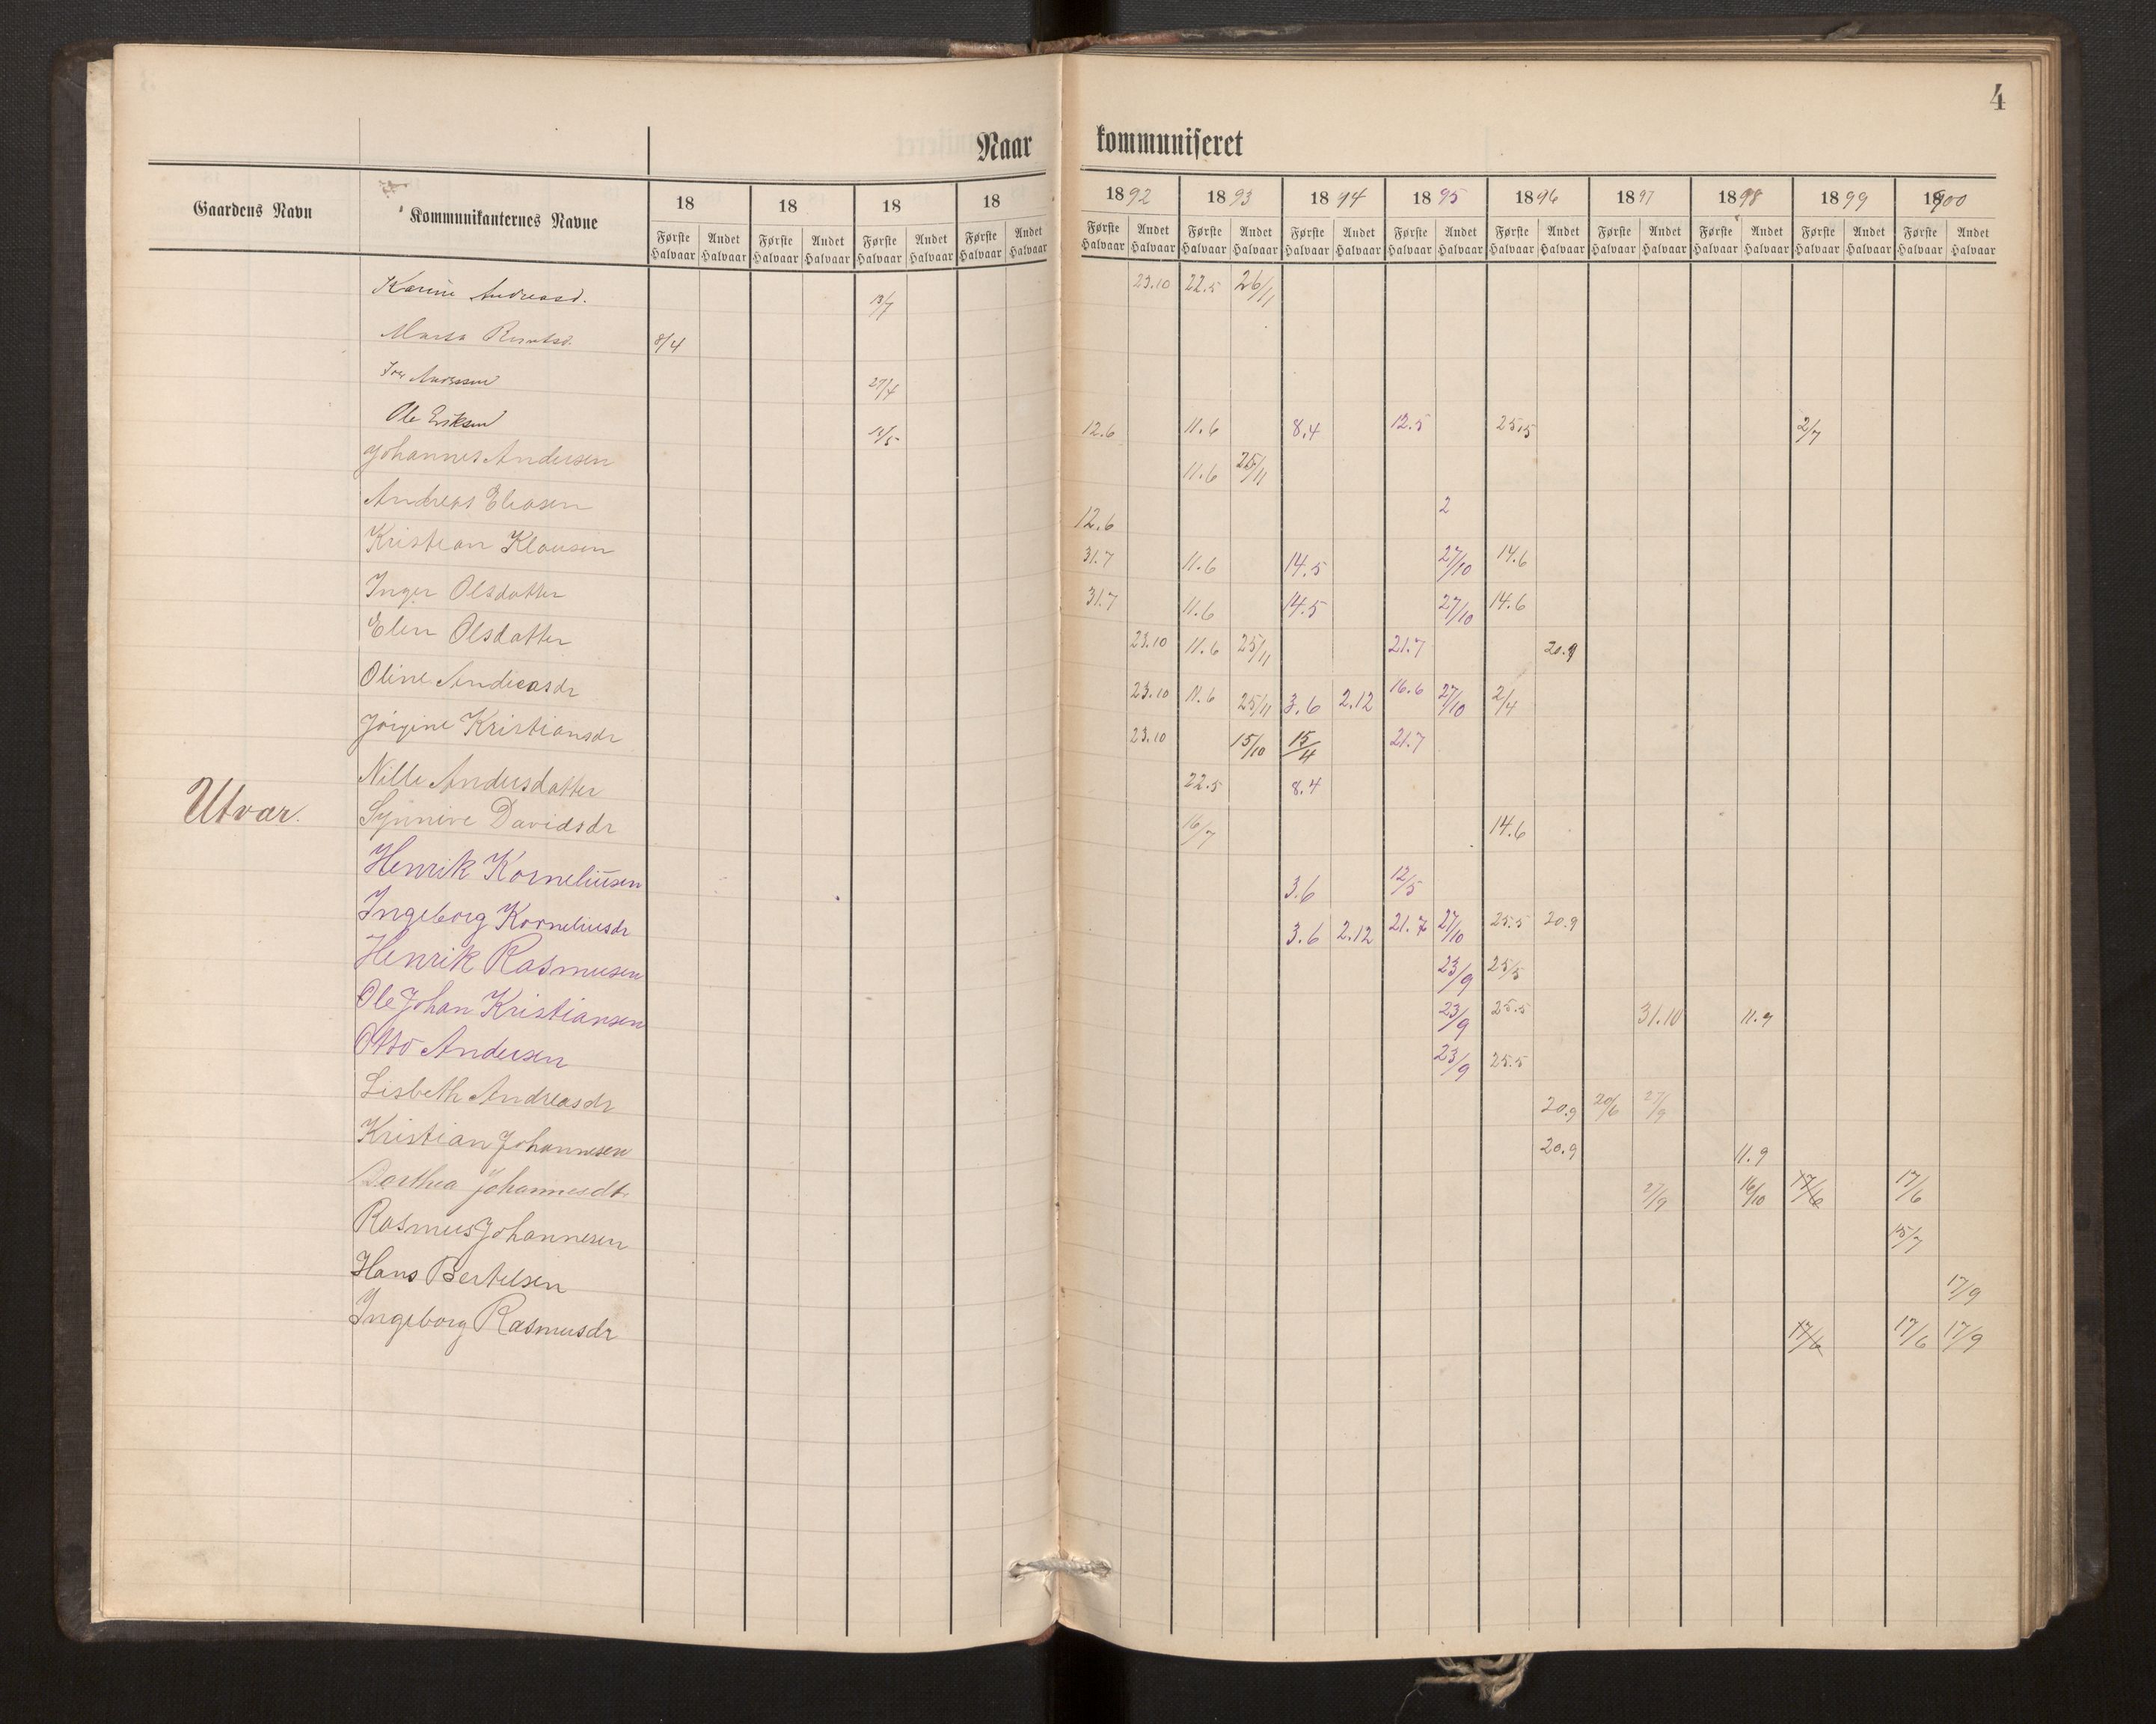 4
Naar kommuniseret
Gaardens Navn Kommunikanternes Navne 18 18 18 18 1892 1893 1894 1895 1896 1897 1898 1899 1900
Første Halvaar Andet Halvaar Første Halvaar Andet Halvaar Første Halvaar Andet Halvaar Første Halvaar Andet Halvaar Første Halvaar Andet Halvaar Første Halvaar Andet Halvaar Første Halvaar Andet Halvaar Første Halvaar Andet Halvaar Første Halvaar Andet Halvaar Første Halvaar Andet Halvaar Første Halvaar Andet Halvaar Første Halvaar Andet Halvaar Første Halvaar Andet Halvaar
Karine Andreasd. 13/7 23.10 22.5 26/11
8/4
27/4
Ole Eriksen 12.6 11.6 8.4 12.5 25.5 2/7
Johannes Andersen 11.6 25/11
Andreas Eliasen 12.6 2
Kristian Klausen 31.7 11.6 14.5 27/10 14.6
Inger Olsdatter 31.7 11.6 14.5 27/10 14.6
Elen Olsdatter 23.10 11.6 25/11 21.7 20.9
Oline Andreasdr 23.10 11.6 25/11 3.6 2.12 16.6 27/10 2/4
Jörgine Kristiansdr 23.10 15/10 15/4 21.7
Nille Andersdatter 22.5 8.4
Utvær. Synnive Davidsdr 16/7 14.6
Henrik Korneliüsen 3.6 12/5
Ingeborg Korneliusdr 3.6 2.12 21.7 27/10 25.5 20.9
Henrik Rasmusen 23/9 25/5
Ole Johan Kristiansen 23/9 25.5 31.10 11.9
Otto Andersen 23/9 25.5
Lisbeth Andreasdr 20.9 20/6 27/9
Kristian Johannesen 20.9 11.9
Dorthea Johannesdtr 27/9 16/10 17/6 17/6
Rasmus Johannesen 15/7
Hans Bertelsen 17/9
Ingeborg Rasmusdr 17/6 17/6 17/9